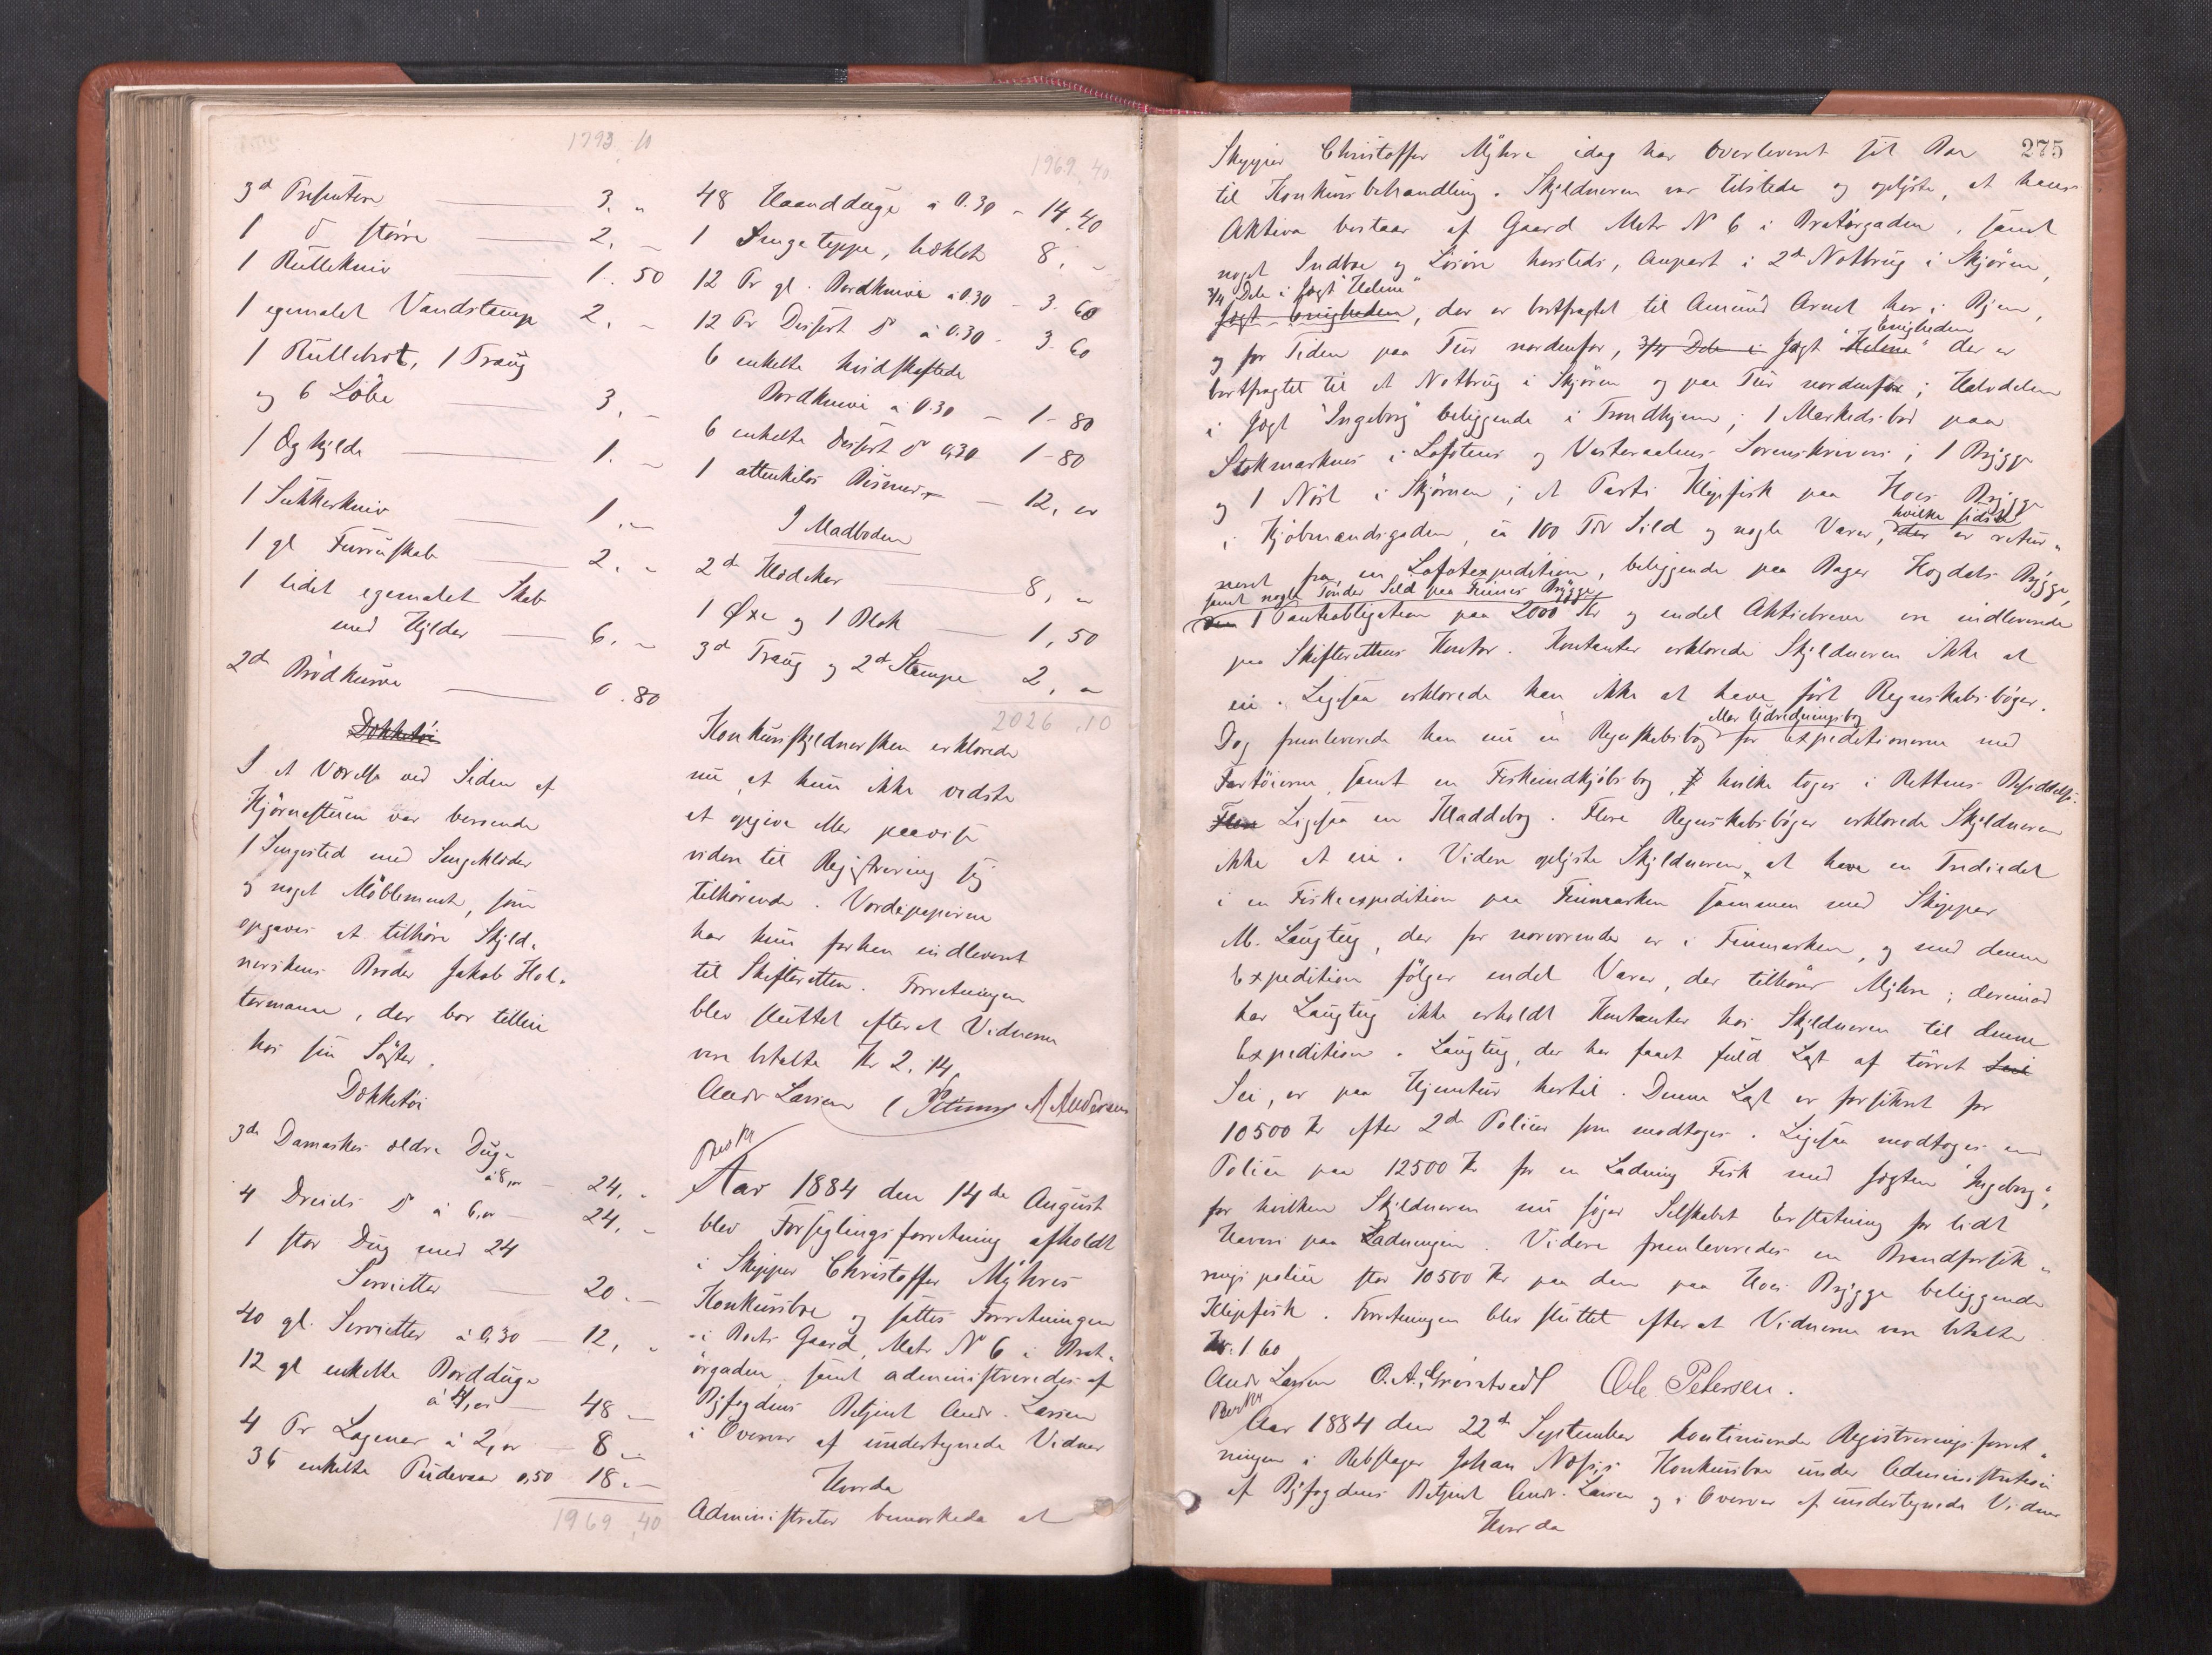 1793.10
3de Presentere 3. "
1 do større 2. –
1 Rullekniv 1.50
1 egemalet Vandstampe 2. –
1 Rullebret, 1 Traug
og 6 Löbe 3. –
1 Ogkjelde 1. –
1 Sukkerkniv 1. –
1 gl Furruskab 2. –
1 lidet egemalet Skab
med Hylder 6. –
2de Brödkurve 0.80
Dækketöi
I et Værelse ved Siden af
Hjörnestuen var beroende
1 Sengested med Sengeklæder
og noget Möblement, som
opgaves at tilhöre Skyld-
nerskens Broder Jakob Hol-
termann, der bor tilleie
hos sin Søster.
Dækketöi
3de Damaskes ældre Duge
à 8,00 – 24. –
4 Dreiels do à 6,00 – 24. –
1 stor Dug med 24
Servietter 20. –
40 gl. Servietter à 0,30 – 12. –
12 gl enkelte Bordduge
à 4,00 – 48 –
4 Pr Lagener à 2,00 – 8. –
36 enkelte Pudevaar 0,50 18. –
1969.40
1969.40
48 Haandduge à 0.30 – 14.40
1 Sengeteppe, heklet 8. –
12 Pr gl. Bordknive à 0.30 – 3.60
12 Pr Dessert do à 0.30 – 3.60
6 enkelte hvidskaftede
Bordknive à 0.30 – 1-80
6 enkelte Dessert do 0,30 1-80
1 attenkilos Bismer – 12,00
I Madboden
2de Klædekar 8, –
1 Øxe og 1 Blok 1,50
3de Traug og 2de Stampe 2, –
2026.10
Konkursskyldnersken erklærede
nu, at hun ikke vidste
at opgive eller paavise
videre til Registrering sig
tilhörende. Værdipapirerne
har hun forhen indleveret
til Skifteretten. Forretningen
blev sluttet efterat Vidnerne
vare betalte Kr 2.14.
Andr Larsen A Andersen
Aar 1884 den 14de August
blev Forseglingsforretning afholdt
i Skipper Christoffer Myhres
Konkursbo og sattes Forretningen
i Boets Gaard, Matr No 6 i Brat-
örgaden, samt administreredes af
Byfogdens Betjent Andr. Larsen
i Overvær af undertegnede Vidner
Hvorda
Administrator bemærkede at
275
Skipper Christoffer Myhre idag har overleveret sit Bo
til Konkursbehandling. Skyldneren var tilstede og oplyste, at hans
Aktiva bestaar af Gaard Matr No 6 i Bratörgaden, samt
noget Indbo og Lösöre hersteds, Anpart i 2de Notbrug i Skjörn,
3/4 Dele i Jægt "Helene"
Jægt Enigheden, der er bortfragtet til Amund Arnet her i Byen,
Enigheden
og for Tiden paa Tur nordenfor, 3/4 Dele i Jægt "Helene" der er
bortfragtet til et Notbrug i Skjörn og paa Tur nordenfor; Halvdelen
i Jægt "Ingeborg" beliggende i Trondhjem; 1 Markedsbod paa
Stokmarknes i Lofotens og Vesteraalens Sorenskriveri; 1 Brygge
og 1 Nöst i Skjörnen; et Parti Klipfisk paa Hoes Brygge
hvilke sidste
i Kjöbmandsgaden, ca 100 Tdr Sild og nogle Varer, der er retur-
neret fra en Lofotexpedition, beliggende paa Bager Hogdals Brygge,
samt nogle Tönder Sild paa Brygge
1 Panteobligation paa 2000 Kr og endel Aktiebreve ere indleverede
paa Skifterettens Kontor. Kontanter erklærede Skyldneren ikke at
eie. Ligesaa erklærede han ikke at have fört Regnskabsböger.
eller Udredningsbog
Dog fremleverede han nu en Regnskabsbog for Expeditionerne med
Fartöierne, samt en Fiskeindkjöbsbog, hvilke toges i Rettens Besiddelse.
Flere Ligesaa en Kladdebog. Flere Regnskabsböger erklærede Skyldneren
ikke at eie. Videre oplyste Skyldneren, at have en Trediedel
i en Fiskeexpedition paa Finmarken sammen med Skipper
M. Laugtug, der for nærværende er i Finmarken, og med denne
Expedition fölger endel Varer, der tilhörer Myhre; derimod
har Laugtug ikke erholdt Kontanter hos Skyldneren til denne
Expedition. Laugtug, der har faaet fuld Last af törret Sei
Sei, er paa Hjemtur hertil. Denne Last er forsikret for
10500 Kr efter 2de Policer som modtoges. Ligesaa modtoges en
Police paa 12500 Kr for en Ladning Fisk med Jægten "Ingeborg",
for hvilken Skyldneren nu söger Selskabet Erstatning for lidt
Havari paa Ladningen. Videre fremleveredes en Brandforsik-
ringspolice stor 10500 Kr paa den paa Hoes Brygge beliggende
Klipfisk. Forretningen blev sluttet efterat Vidnerne vare betalte
Kr. 1 60
Andr Larsen O. A. Grönstvedt Ole Petersen.
Aar 1884 den 22de September kontinueredes Registreringsforret-
ningen i Rebslager Johan Næss's Konkursbo under Administration
af Byfogdens Betjent Andr. Larsen og i Overvær af undertegnede Vidner
Hvorda